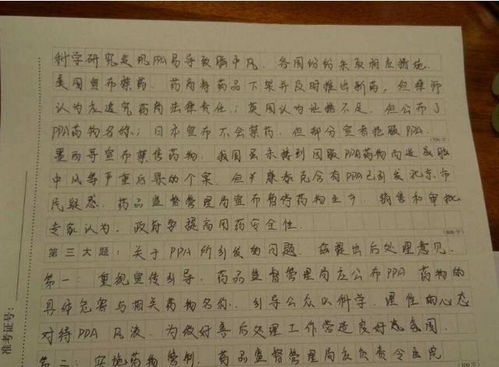 科学研究发现PPA易导致脑中风，各国纷纷采取相应措施。
美国宣布禁药，药商将药品下架并及时推出新药，但律师
认为应追究药商法律责任；英国认为证据不足，但公布了
PPA药物名称；日本宣布不会禁药，但部分患者抵服PPA；
墨西哥宣布禁售药物。我国虽未接到因服PPA药物而造成脑
中风等严重后果的个案，但天康泰克含有PPA已引发北京市
民疑惑，药品监督管理局宣布暂停药物生产、销售和审批
专家认为，政府要提高用药安全性。
第三大题：关于PPA所引发的问题，兹提出后处理意见。
第一：重视宣传引导，药品监督管理局应公布PPA药物的
具体危害与相关药物名称，引导公众以科学、理性的心态
对待PPA风波，为做好善后处理工作营造良好氛围。
第二：实施药物管制，药品监督管理局应负责令医院
准考证号：